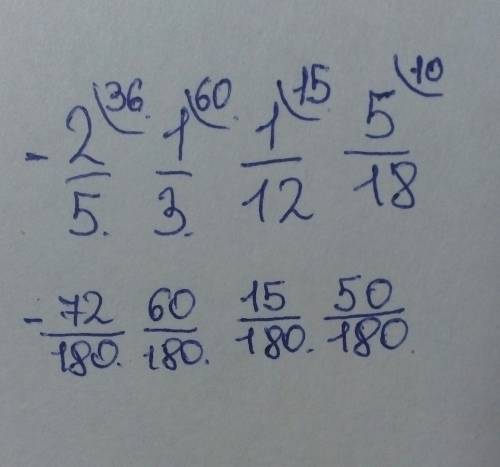 -2/5 (36 1/3 (60 1/12 (15 5/18 (10
-72/180 60/180 15/180 50/180